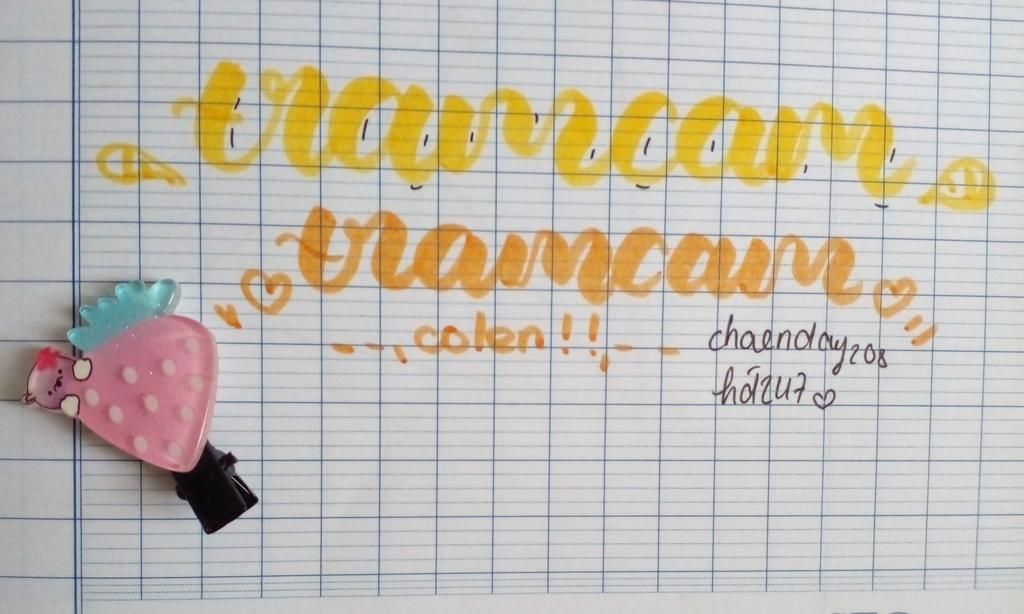 tramcam
tramcam
colen!!
chaenday208
hỏi247